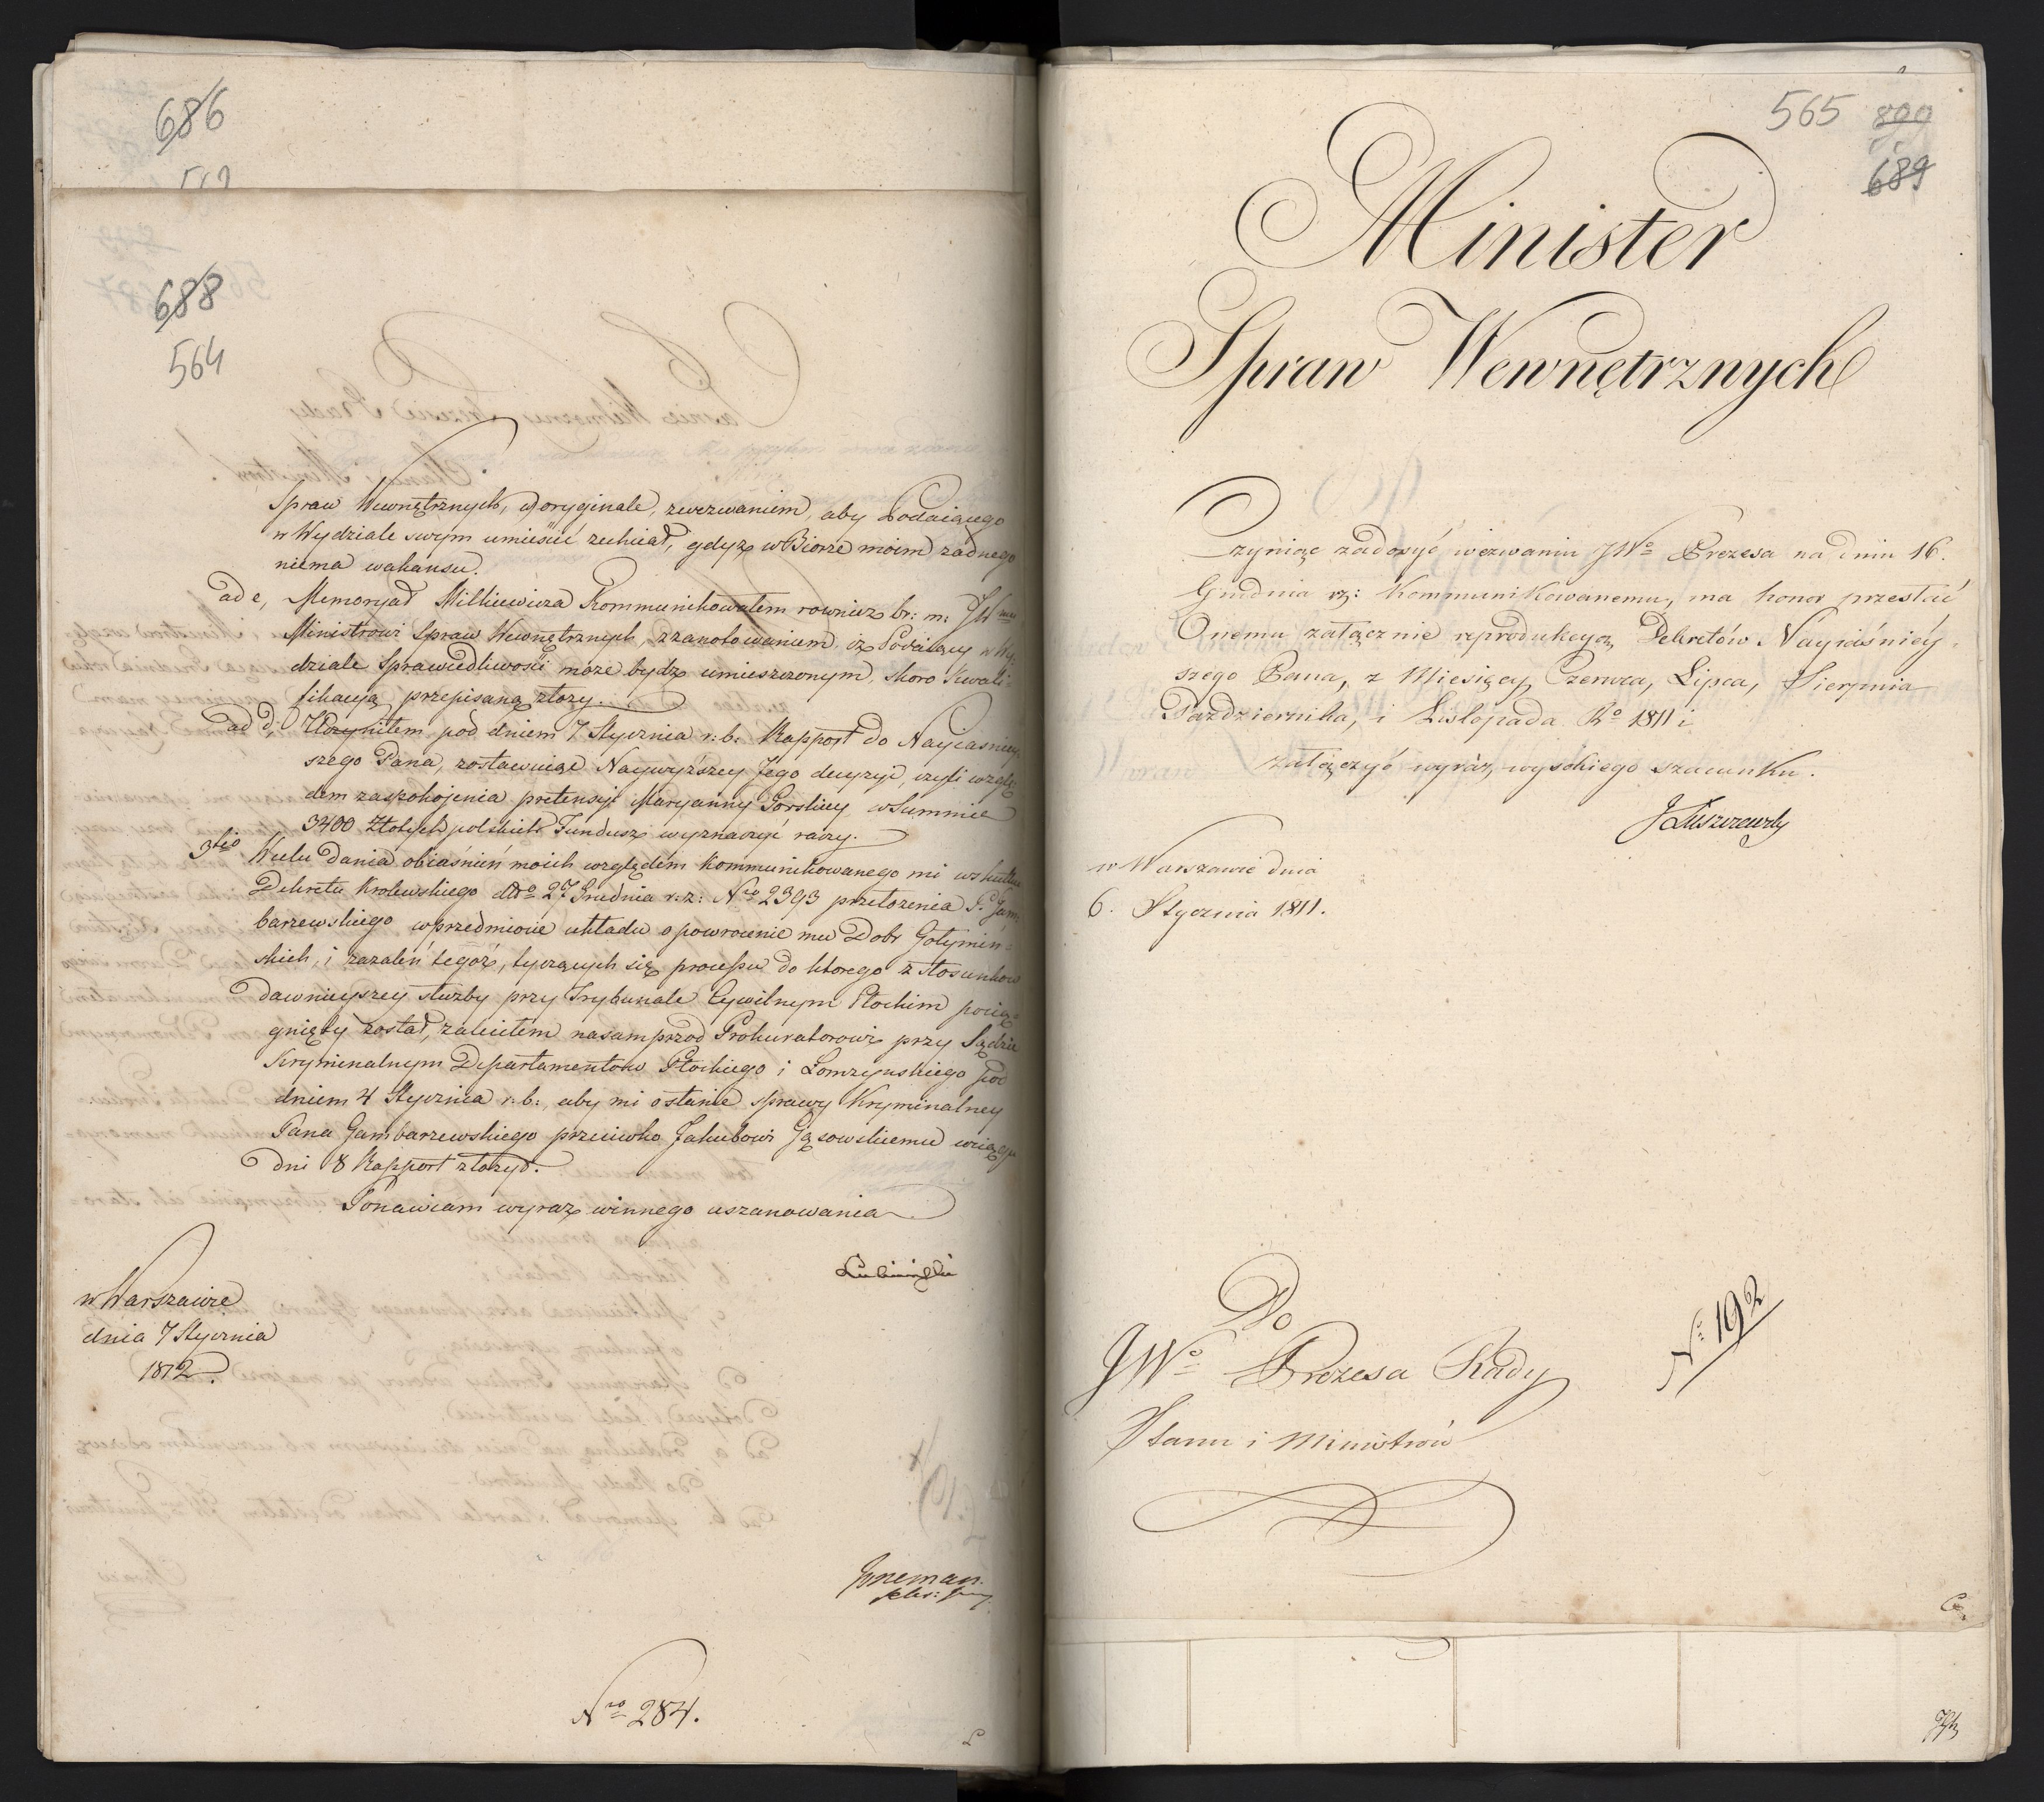 686
688
564
Spraw Wewnętrznych, w oryginale, z wezwaniem, aby Podaiącego
w Wydziale swym umieścić zechciał, gdyż w Biorze moim żadnego
niema wakansu.
ad c, Memoryał Milkiewicza Kommunikowałem rownież br: m: JW
Ministrowi Spraw Wewnętrznych, z zanotowaniem, iż Podaiący w Wy
dziale Sprawiedliwości może bydź umieszczonym, skoro Kwali
fikacyą przepisaną złoży.
ad d, Uczyniłem pod dniem 7 Stycznia r: b: Rapport do Nayiaśniey
szego Pana, zostawuiąc Naywyższey Jego decyzyi, czyli wzglę
dem zaspokojenia pretensyi Maryanny Gorskiey w Summie
3400 Złotych polskich Fundusz wyznaczyć raczy.
3tio W celu dania obiaśnień moich względem kommunikowanego mi w skutku
Dekretu Krolewskiego ddto 27 Grudnia r: z: Nro 2393 przełożenia P. Gam
barzewskiego w przedmiocie układu o powrocenie mu Dobr Gołymiń-
skich, i zażaleń tegóż, tyczących się processu do ktorego z stosunkow
dawnieyszey służby przy Trybunale Cywilnym Płockim pocią-
gnięty został, zaleciłem nasamprzod Prokuratorowi przy Sądzie
Kryminalnym Departamentow Płockiego i Łomżyńskiego pod
dniem 4 Stycznia r: b:, aby mi o stanie sprawy Kryminalney
Pana Gambarzewskiego przeciwko Jakubowi Gąsowskiemu w ciągu
dni 8 Rapport złożył.
Ponawiam wyraz winnego uszanowania
Lubieński
w Warszawie
dnia 7 Stycznia
1812.
Nro 284.
565 899
689
Minister
Spraw Wewnętrznych
Czyniąc zadosyć wezwaniu JWo Prezesa na dniu 16.
Grudnia rz: Kommunikowanemu, ma honor przesłać
Onemu załącznie reprodukcyą Dekretów Nayiaśniey
szego Pana, z Miesięcy Czerwca, Lipca, Sierpnia
Października, i Listopada Ro 1811 i
załączyć wyraz wysokiego szacunku.
JŁuszczewsky
w Warszawie dnia
6. Stycznia 1811.
Do
JWo Prezesa Rady
Stanu i Ministrów
No 192